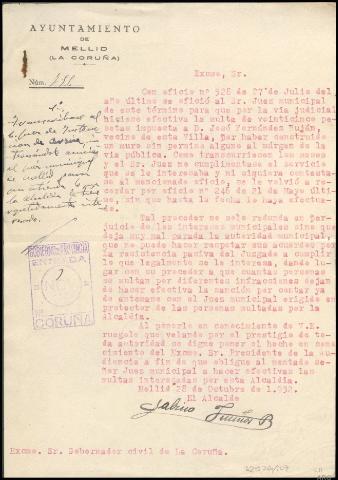 AYUNTAMIENTO
DE
MELLID
(LA CORUÑA)
Núm.
Excmo. Sr.
Con oficio nº 528 de 27 de Julio del
año último se ofició al Sr. Juez municipal
de este término para que por la vía judicial
hiciese efectiva la multa de veinticinco pe-
setas impuesta a D. José Fernández Buján,
vecino de esta Villa, por haber construido
un muro sin permiso alguno al márgen de la
vía pública. Como transcurriesen los meses
y el Sr. Juez no cumplimentase el servicio
que se le interesaba y ni siquiera contesta-
se al mencionado oficio, se le volvió a re-
cordar por oficio nº 246 de 21 de Mayo últi-
mo, sin que hasta la fecha lo haya efectua-
do.
Tal proceder no solo redunda en per-
juicio de los intereses municipales sino que
deja muy mal parada la autoridad municipal,
que no puede hacer respetar sus acuerdos por
la resistencia pasiva del Juzgado a cumplir
lo que legalmente se le interesa, dando lu-
gar con su proceder a que cuantas personas
se multan por diferentes infracciones dejen
de hacer efectiva la sanción por contar ya
de antemano con el Juez municipal erigido en
protector de las personas multadas por la
Alcaldía.
Al ponerlo en conocimiento de V.E.
ruegole que velando por el prestigio de to-
da autoridad se digne poner el hecho en cono-
cimiento del Excmo. Sr. Presidente de la Au-
diencia a fin de que obligue al mentado se-
ñor Juez municipal a hacer efectivas las
multas interesadas por esta Alcaldía.
Mellid 28 de Octubre de 1.932.
El Alcalde
GOBIERNO CIVIL
ENTRADA
NOV
CORUÑA
Excmo. Sr. Gobernador civil de La Coruña.